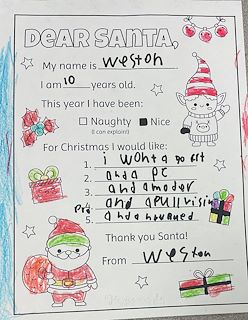 DEAR SANTA,
My name is weston
I am 10 years old.
This year I have been:
Naughty Nice
(I can explain!)
For Christmas I would like:
1. i wont a
2. and a PC
3. and a
4. and a
5. and a
Thank you Santa!
From weston